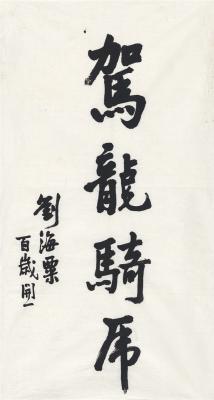 駕龍騎虎
劉海粟
百歲開一